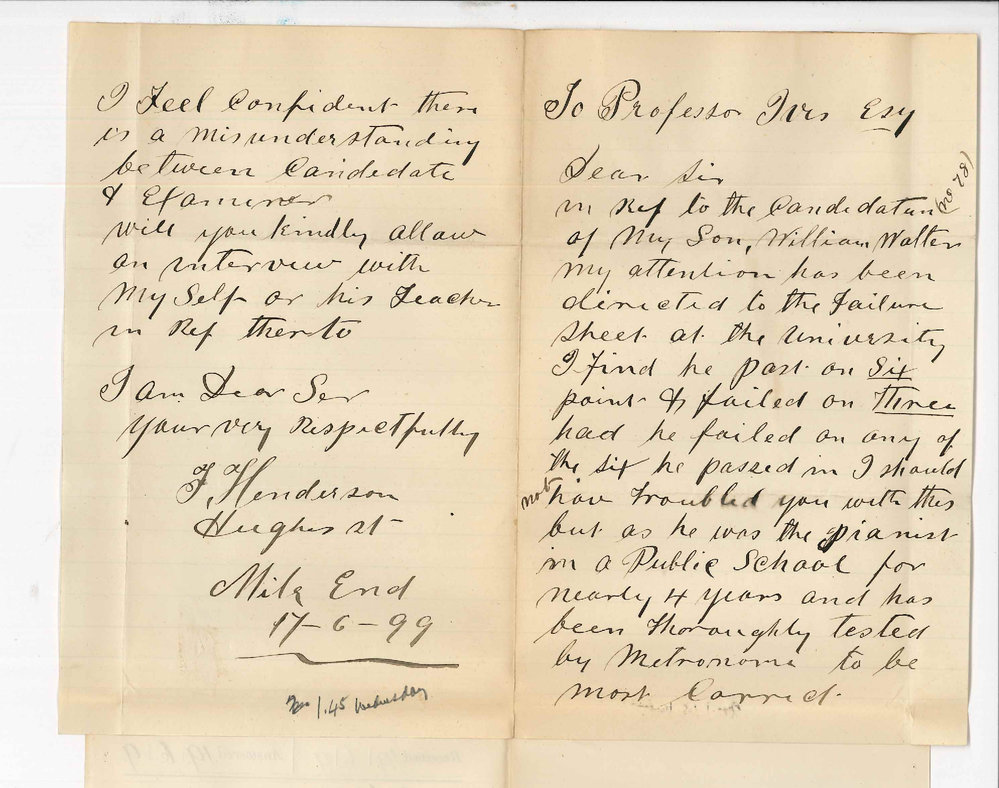 To Professor Ives Esq
Dear Sir
(No 781)
in Ref to the Candedature
of My Son, William Walter
my attention has been
dirrected to the Failure
sheet at the University
I Find he past on Six
point & failed on Three
had he failed on any of
the six he passed in I should
not hav troubled you with this
but as he was the pianist
in a Public School for
nearly 4 years and has
been thoroughly tested
by Metronome to be
most Correct
I Feel Confident there
is a Misunderstanding
between Candedate
& Examiner
will you kindly allow
an interview with
My Self or his Teacher
in Ref thereto
I am Dear Ser
your very Respectfully
F Henderson
Hughes st
Mile End
17-6-99
1.45 Wednesday